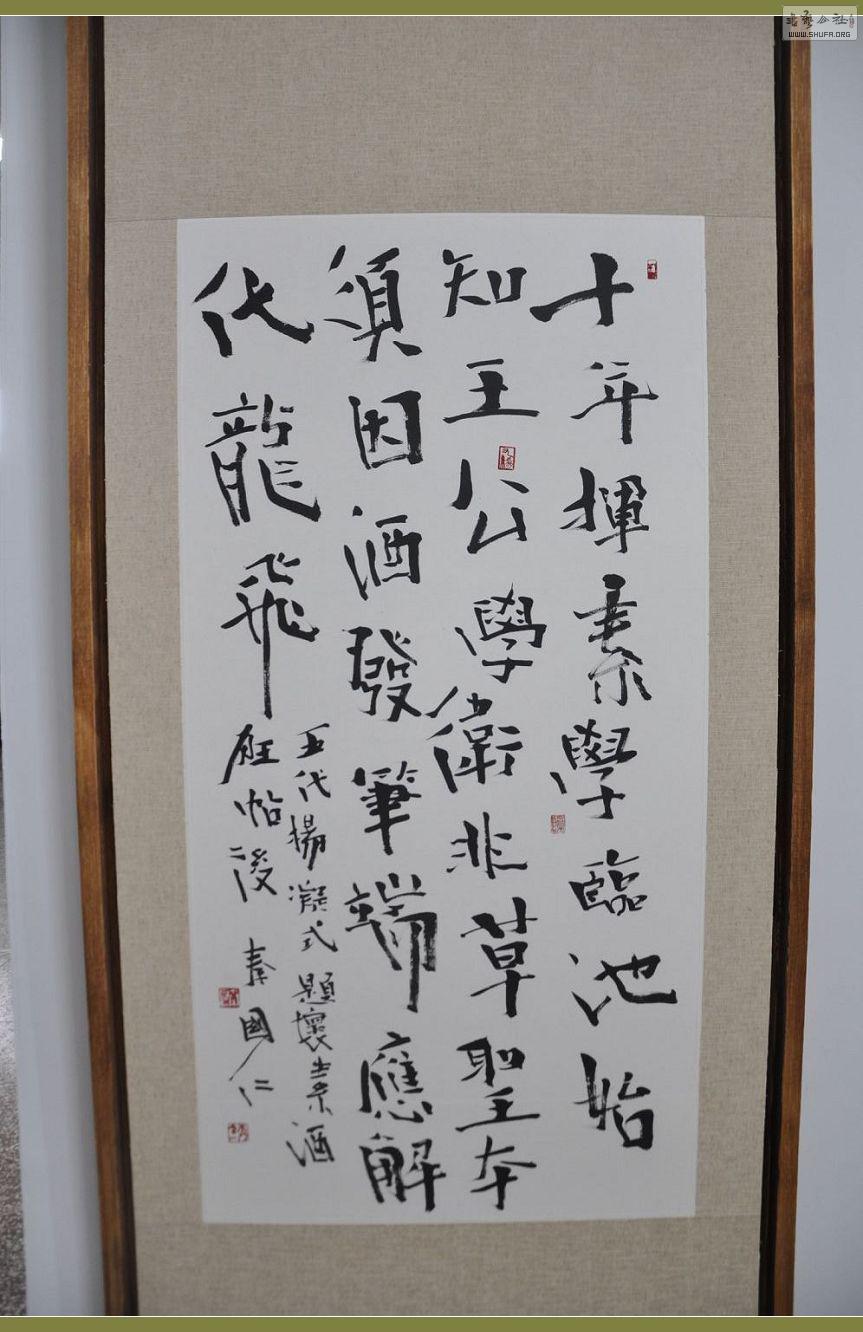 十年揮素學臨池始
知王公學衛非草聖本
須因酒發筆端應解
代龍飛
五代楊凝式題壞素酒
狂帖後 秦國仁
WWW.SHUFA.ORG